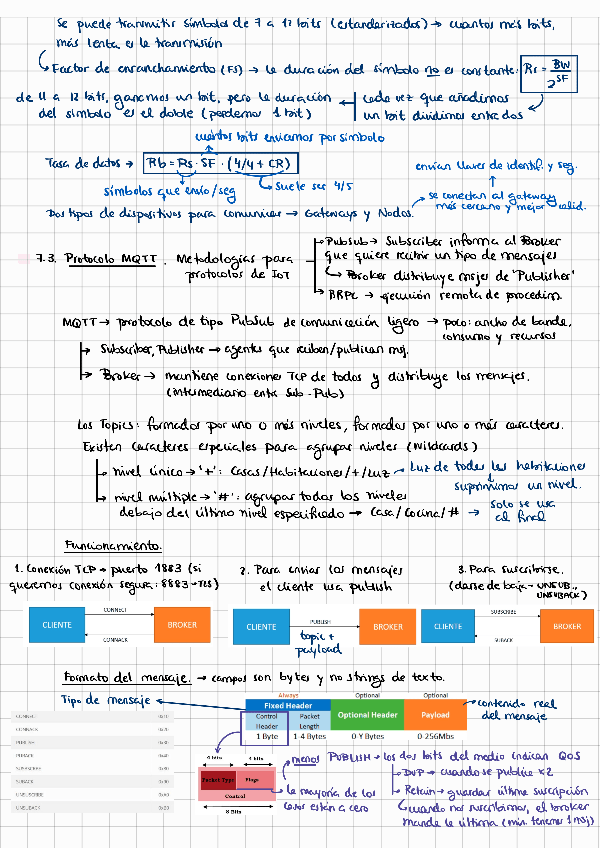 Se puede transmitir símbolos de 7 a 12 bits (estanderizados) → cuantos más bits,
más lenta es la transmisión
Factor de enranchamiento (FS) → la duración del símbolo no es constante: Rs = BW / 2^SF
de 11 a 12 bits, ganamos un bit, pero la duración
del símbolo es el doble (perdemos 1 bit)
cada vez que añadimos
un bit dividimos entre dos
cuántos bits enviamos por símbolo
Tasa de datos → Rb = Rs · SF · (4/4 + CR)
símbolos que envío/seg
Suele ser 4/5
envían llaves de identif. y seg.
se conectan al gateway
más cercano y mejor calid.
Dos tipos de dispositivos para comunicar → Gateways y Nodos.
7.3. Protocolo MQTT. Metodologías para
protocolos de IoT
PubSub → Subscriber informa al Broker
que quiere recibir un tipo de mensajes
Broker distribuye msjes de "Publisher"
→ ejecución remota de procedim.
MQTT → protocolo de tipo PubSub de comunicación ligero → poco: ancho de banda,
consumo y recursos
Subscriber, Publisher → agentes que reciben/publican msj.
Broker → mantiene conexiones TCP de todos y distribuye los mensajes.
(intermediario entre Sub-Pub)
Los Topics: formados por uno o más niveles, formados por uno o más caracteres.
Existen caracteres especiales para agrupar niveles (Wildcards)
nivel único → '+': Casas/Habitaciones/+/Luz → Luz de todas las habitaciones
suprimimos un nivel.
nivel múltiple → '#': agrupar todos los niveles
debajo del último nivel especificado → Casa/Cocina/# →
Solo se usa
al final
Funcionamiento.
1. Conexión TCP → puerto 1883 (si
queremos conexión segura: 8883 → TLS)
2. Para enviar los mensajes
el cliente usa publish
3. Para suscribirse.
(darse de baja → UNSUB.,
UNSUBACK)
CLIENTE
CONNECT
CONNACK
BROKER
CLIENTE
PUBLISH
topic +
payload
BROKER
CLIENTE
SUBSCRIBE
SUBACK
BROKER
Formato del mensaje. → campos son bytes y no strings de texto.
Tipo de mensaje
CONNECT 0x10
CONNACK 0x20
PUBLISH 0x30
PUBACK 0x40
SUBSCRIBE 0x80
SUBACK 0x90
UNSUBSCRIBE 0xA0
UNSUBACK 0xB0
Always Optional Optional
Fixed Header
Control Header
Packet Length
Optional Header
Payload
1 Byte 1-4 Bytes 0-Y Bytes 0-256Mbs
contenido real
del mensaje
4 bits 4 bits
Packet Type Flags
Control
8 Bits
menos PUBLISH → los dos bits del medio indican QoS
la mayoría de los
casos están a cero
DUP → cuando se publica x2
Retain → guardar última suscripción
cuando nos suscribimos, el broker
manda la última (mín. tenemos 1 msj)